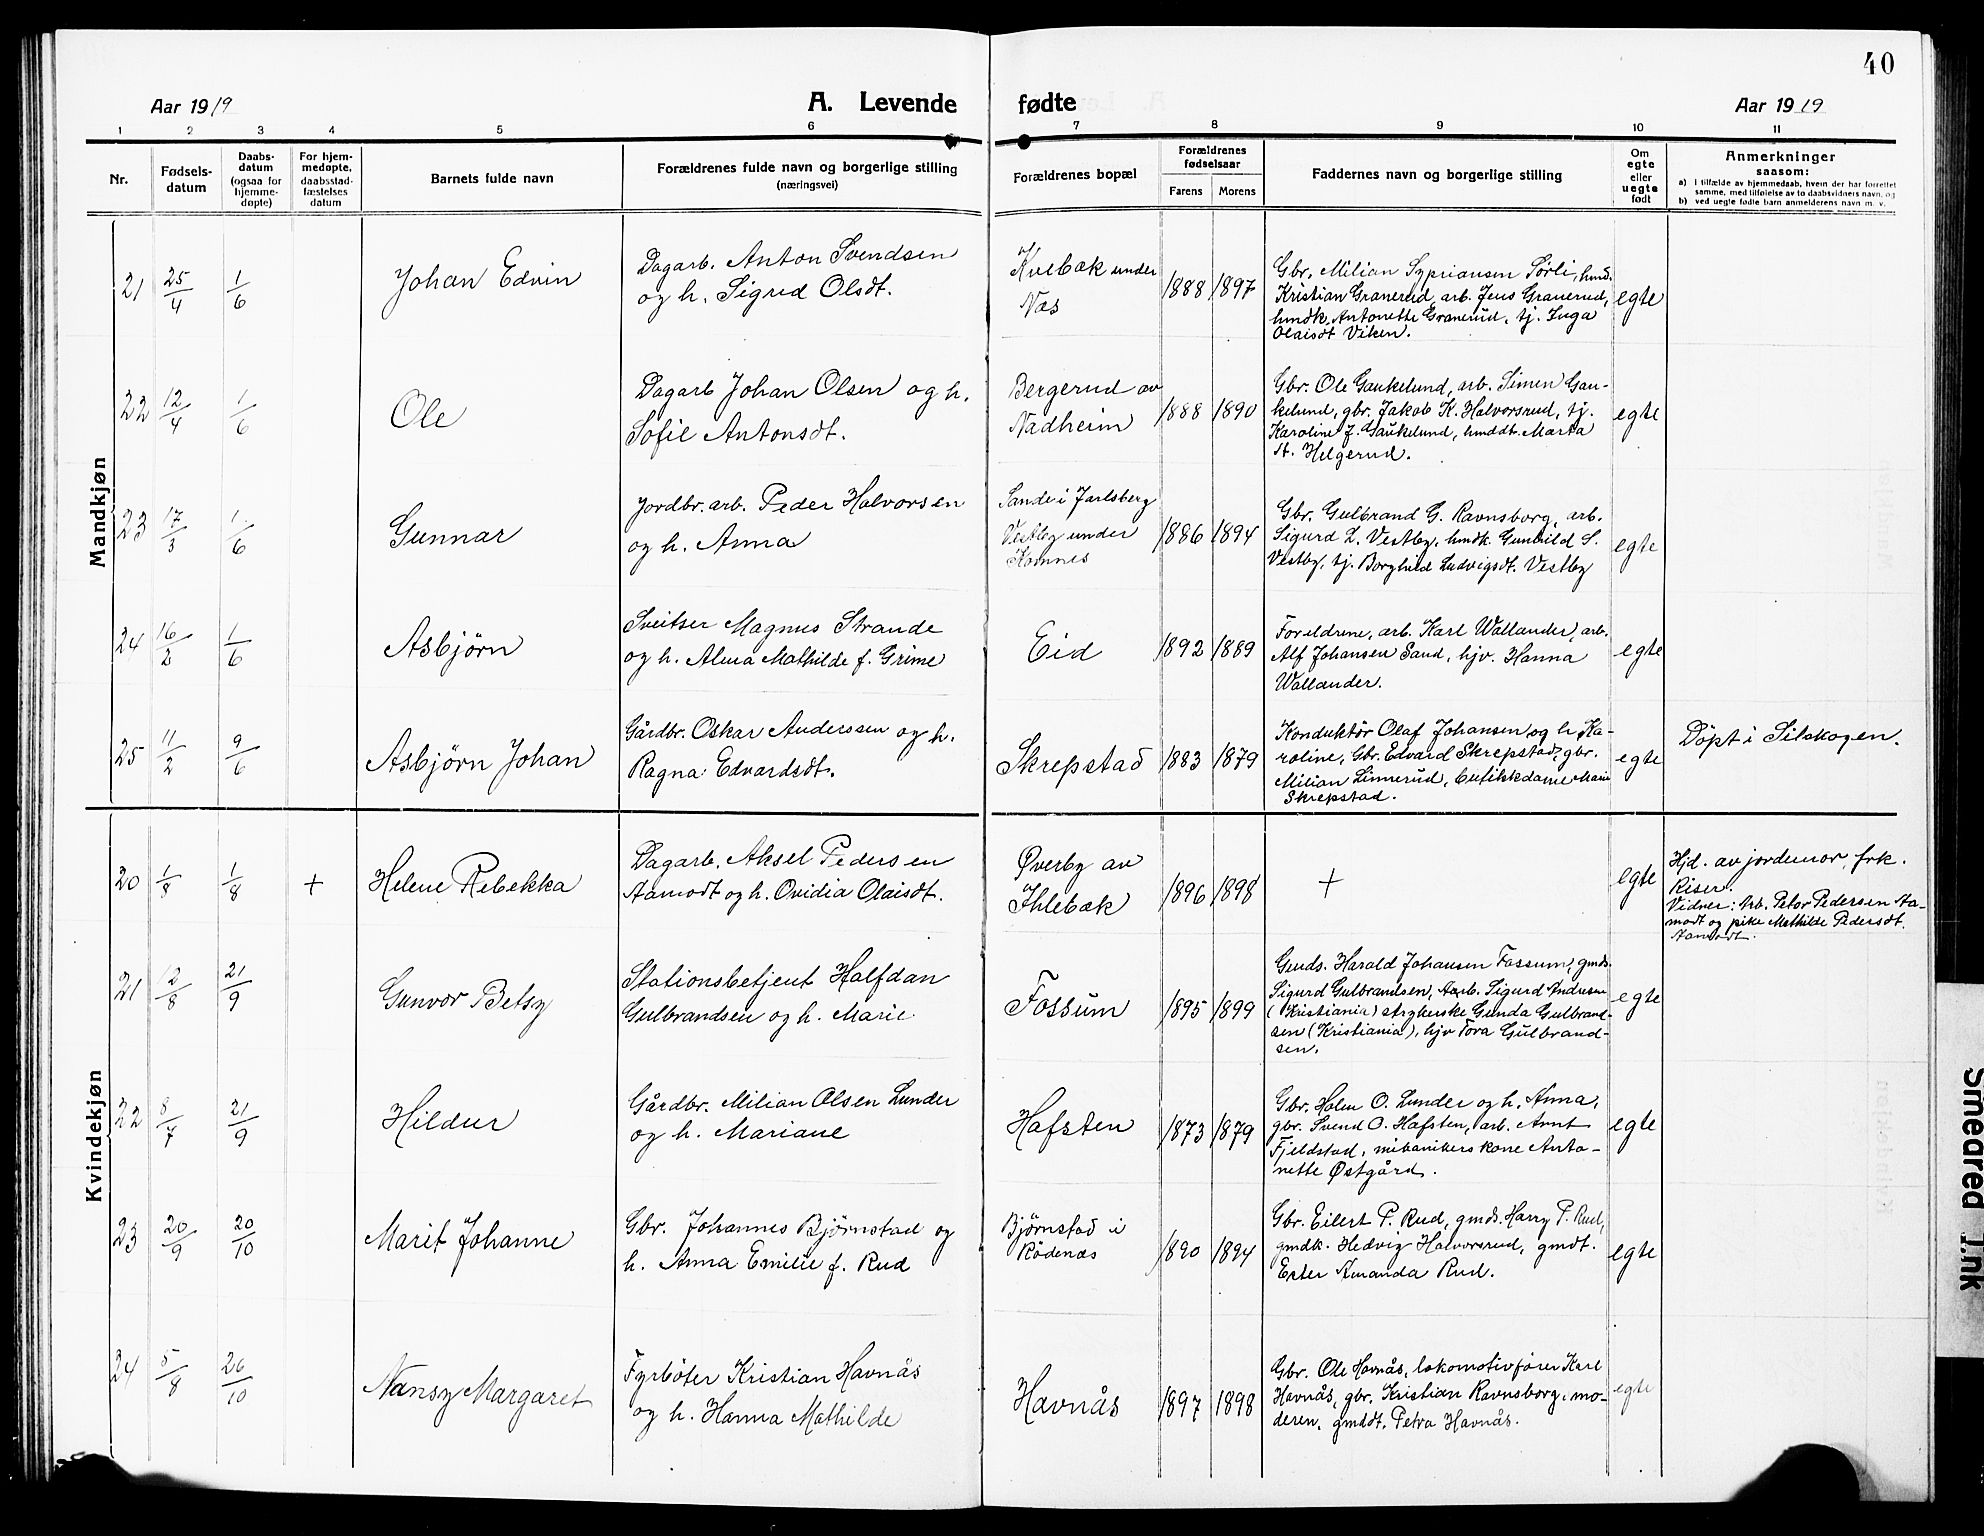 40
Aar 1919
A. Levende fødte
Aar 1919
1 2 3 4 5 6 7 8 9 10 11
Nr.
Fødsels-
datum
Daabs-
datum
(ogsaa for
hjemme-
døpte)
For hjem-
medøpte,
daabsstad-
fæstelses
datum
Barnets fulde navn
Forældrenes fulde navn og borgerlige stilling
(næringsvei)
Forældrenes bopæl
Forældrenes
fødselsaar
Farens Morens
Faddernes navn og borgerlige stilling
Om
egte
eller
uegte
født
Anmerkninger
saasom:
a) I tilfælde av hjemmedaab, hvem der har forrettet
samme, med tilføielse av to daabsvidners navn, og
b) ved uegte fødte barn anmelderens navn m. v.
Mandkjøn
21 25/4 1/6 Johan Edvin
Dagarb. Anton Svendsen
og h. Sigrid Olsdt.
Kvebæk under
Næs
1888 1897
Gbr. Milian Sypriansen Sørli, hmd.
Kristian Granerud, arb. Jens Granerud,
hmdk. Antonette Granerud, tj. Inga
Olaisdt Viken.
egte
22 12/4 1/6 Ole
Dagarb Johan Olsen og h.
Sofie Antonsdt.
Bergerud av
Nadheim
1888 1890
Gbr. Ole Gaukelund, arb. Simen Gau-
kelund, gbr. Jakob K. Halvorsrud, tj.
Karoline J. Gaukelund, hmddt. Marta
St. Helgerud.
egte
23 17/3 1/6 Gunnar
Jordbr. arb. Peder Halvorsen
og h. Anna
Sande i Jarlsberg
Vestby under
Kamnes
1886 1894
Gbr. Gulbrand G. Ravnsborg, arb.
Sigurd L. Vestby, hmdk. Gunhild S.
Vestby, tj. Borghild Ludvigsdt. Vestby
egte
24 16/2 1/6 Asbjörn
Sveitser Magnus Strande
og h. Alma Mathilde f. Grime
Eid
1892 1889
Foreldrene, arb. Karl Wallander, arb.
Alf Johansen Sand, hjv. Hanna
Wallander.
egte
25 11/2 9/6 Asbjörn Johan
Gårdbr. Oskar Anderssen og h.
Ragna Edvardsdt.
Skrepstad
1883 1879
Konduktör Olaf Johansen og h. Ka-
roline, Gbr. Edvard Skrepstad, gbr.
Milian Linnerud, butikkdame Marie
Skrepstad.
egte
Döpt i Silskogen.
Kvindekjøn
20 1/8 1/8 + Helene Rebekka
Dagarb. Aksel Pedersen
Aamodt og h. Ovidia Olaisdt.
Øverby av
Ihlebæk
1896 1898
+
egte
Hjd. av jordemor, frk.
Riser.
Vidner: Arb. Petor Pedersen Aa-
modt og pike Mathilde Pedersdt.
Aamodt.
21 12/8 21/9 Gunvor Betsy
Stationsbetjent Halfdan
Gulbrandsen og h. Marie
Fossum
1895 1899
Gmds. Harald Johansen Fossum, gmds.
Sigurd Gulbrandsen, Aarb. Sigurd Andresen
(Kristiania) strykerske Gunda Gulbrand-
sen (Kristiania), hjv Tora Gulbrand-
sen.
egte
22 8/7 21/9 Hildur
Gårdbr. Milian Olsen Lunder
og h. Mariane
Hafsten
1873 1879
Gbr. Holm O. Lunder og h. Anna,
gbr. Svend O. Hafsten, arb. Arnt
Fjeldstad, mekanikers kone Anto-
nette Østgård.
egte
23 20/9 20/10 Marit Johanne
Gbr. Johannes Bjørnstad og
h. Anna Emilie f. Rud
Bjørnstad i
Rödenæs
1890 1894
Gbr. Eilert P. Rud, gmds. Harry P. Rud,
gmdk. Hedvig Halvorsrud, gmdt.
Ester Amanda Rud.
egte
24 5/8 26/10 Nansy Margaret
Fyrböter Kristian Havnås
og h. Hanna Mathilde
Havnås
1897 1898
Gbr. Ole Havnås, lokomotivfører Karl
Havnås, gbr. Kristian Ravnsborg, mo-
deren, gmddt. Petra Havnås.
egte
Smeared Ink